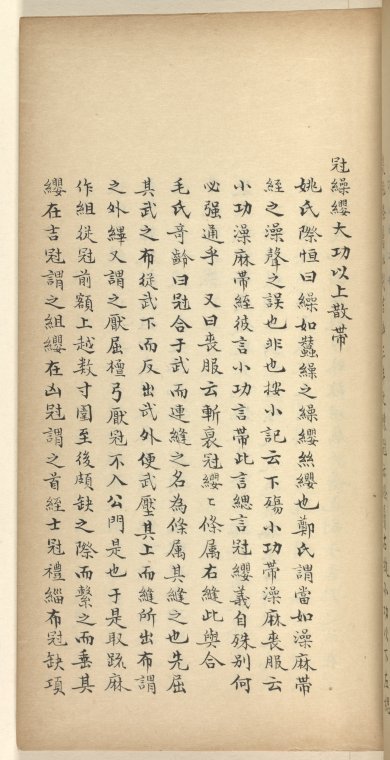 冠繰纓大功以上散帶
姚氏際恒曰繰如蠶繰之繰纓絲纓也鄭氏謂當如澡麻帶
絰之澡聲之誤也非也按小記云下殤小功帶澡麻喪服云
小功澡麻帶絰彼言小功言帶此言總言冠纓義自殊別何
必强通乎　又曰喪服云斬裏冠纓〻條属右縫此與合
毛氏奇齡曰冠合于武而連縫之名為條属其縫之也先屈
其武之布從武下而反出武外使武壓其上而縫所出布謂
之外縪又謂之厭屈檀弓厭冠不入公門是也于是取疏麻
作組從冠前額上越数寸圍至後頗缺之際而繫之而垂其
纓在吉冠謂之組纓在凶冠謂之首絰士冠禮緇布冠缺項